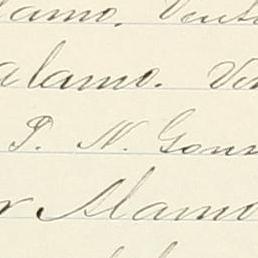 alamo. Vent
alamo. Ven
P. N. Gonn
r Alamo